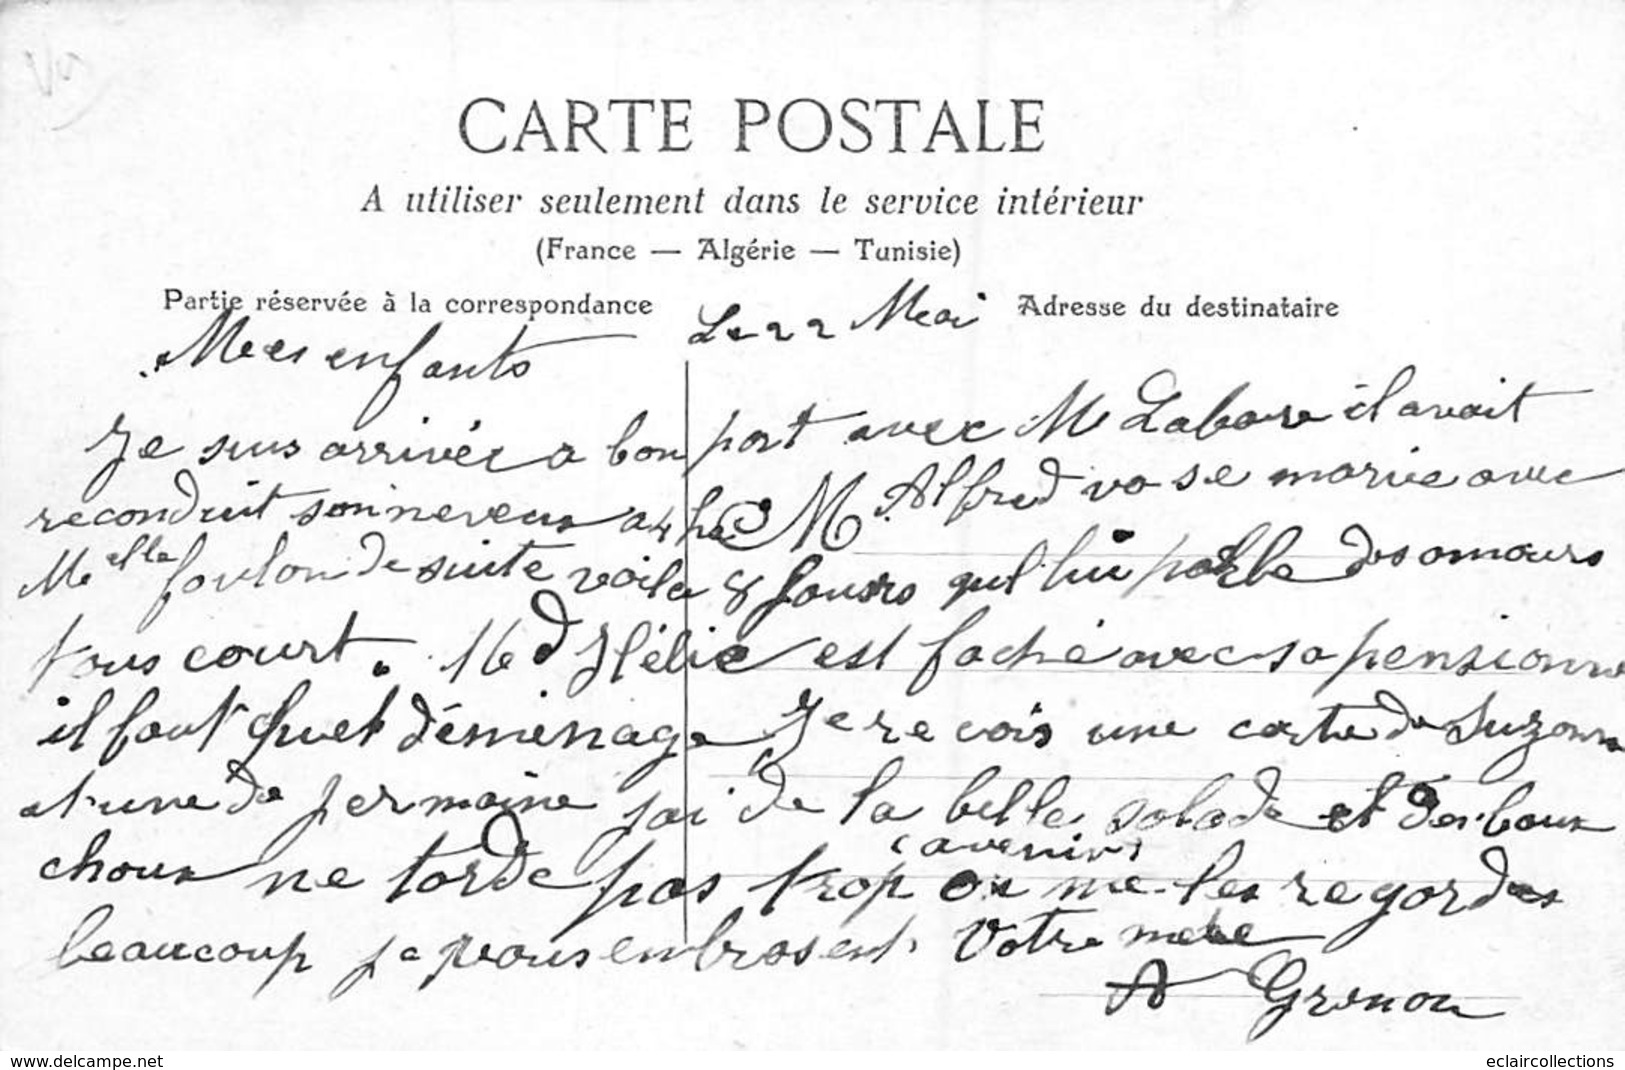 CARTE POSTALE
A utiliser seulement dans le service intérieur
(France — Algérie — Tunisie)
Partie réservée à la correspondance
Adresse du destinataire
Le 22 Mai
Mes enfants
Je suis arrivée a bon port avec M Labare il avait
reconduit son neveux a 4 h M. Alfred va se marie avec
Melle foulon de suite voila 8 Jours qul lui parle des amours
tous court. d Hélie est faché avec sa pensionn
il faut quel déménage Je recois une carte de Suzanne
et une de jermaine jai de la belle salade et des baux
choux ne tarde pas trop (avenir) on me les regardes
beaucoup je vous embrasent. Votre mere
A Grenon
eclaircollections
www.delcampe.net